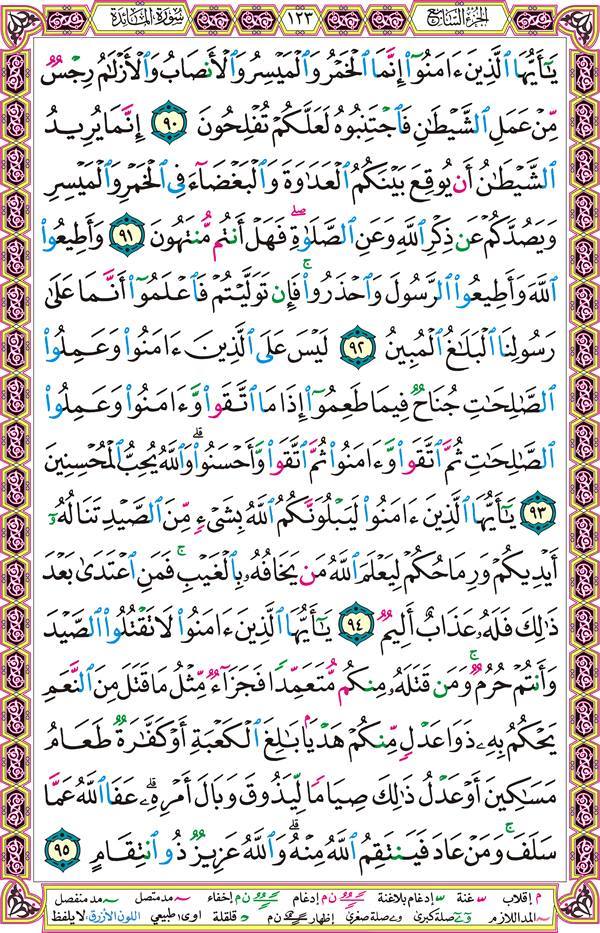 الجزء السابع ١٢٣ سورة المائدة
يَـٰٓأَيُّهَا ٱلَّذِينَ ءَامَنُوٓا۟ إِنَّمَا ٱلْخَمْرُ وَٱلْمَيْسِرُ وَٱلْأَنصَابُ وَٱلْأَزْلَـٰمُ رِجْسٌ
مِّنْ عَمَلِ ٱلشَّيْطَـٰنِ فَٱجْتَنِبُوهُ لَعَلَّكُمْ تُفْلِحُونَ ٩٠ إِنَّمَا يُرِيدُ
ٱلشَّيْطَـٰنُ أَن يُوقِعَ بَيْنَكُمُ ٱلْعَدَٰوَةَ وَٱلْبَغْضَآءَ فِى ٱلْخَمْرِ وَٱلْمَيْسِرِ
وَيَصُدَّكُمْ عَن ذِكْرِ ٱللَّهِ وَعَنِ ٱلصَّلَوٰةِ ۖ فَهَلْ أَنتُم مُّنتَهُونَ ٩١ وَأَطِيعُوا۟
ٱللَّهَ وَأَطِيعُوا۟ ٱلرَّسُولَ وَٱحْذَرُوا۟ ۚ فَإِن تَوَلَّيْتُمْ فَٱعْلَمُوٓا۟ أَنَّمَا عَلَىٰ
رَسُولِنَا ٱلْبَلَـٰغُ ٱلْمُبِينُ ٩٢ لَيْسَ عَلَى ٱلَّذِينَ ءَامَنُوا۟ وَعَمِلُوا۟
ٱلصَّـٰلِحَـٰتِ جُنَاحٌ فِيمَا طَعِمُوٓا۟ إِذَا مَا ٱتَّقَوا۟ وَّءَامَنُوا۟ وَعَمِلُوا۟
ٱلصَّـٰلِحَـٰتِ ثُمَّ ٱتَّقَوا۟ وَّءَامَنُوا۟ ثُمَّ ٱتَّقَوا۟ وَّأَحْسَنُوا۟ ۗ وَٱللَّهُ يُحِبُّ ٱلْمُحْسِنِينَ
٩٣ يَـٰٓأَيُّهَا ٱلَّذِينَ ءَامَنُوا۟ لَيَبْلُوَنَّكُمُ ٱللَّهُ بِشَىْءٍ مِّنَ ٱلصَّيْدِ تَنَالُهُۥٓ
أَيْدِيكُمْ وَرِمَاحُكُمْ لِيَعْلَمَ ٱللَّهُ مَن يَخَافُهُۥ بِٱلْغَيْبِ ۚ فَمَنِ ٱعْتَدَىٰ بَعْدَ
ذَٰلِكَ فَلَهُۥ عَذَابٌ أَلِيمٌ ٩٤ يَـٰٓأَيُّهَا ٱلَّذِينَ ءَامَنُوا۟ لَا تَقْتُلُوا۟ ٱلصَّيْدَ
وَأَنتُمْ حُرُمٌ ۚ وَمَن قَتَلَهُۥ مِنكُم مُّتَعَمِّدًا فَجَزَآءٌ مِّثْلُ مَا قَتَلَ مِنَ ٱلنَّعَمِ
يَحْكُمُ بِهِۦ ذَوَا عَدْلٍ مِّنكُمْ هَدْيًۢا بَـٰلِغَ ٱلْكَعْبَةِ أَوْ كَفَّـٰرَةٌ طَعَامُ
مَسَـٰكِينَ أَوْ عَدْلُ ذَٰلِكَ صِيَامًا لِّيَذُوقَ وَبَالَ أَمْرِهِۦ ۗ عَفَا ٱللَّهُ عَمَّا
سَلَفَ ۚ وَمَنْ عَادَ فَيَنتَقِمُ ٱللَّهُ مِنْهُ ۗ وَٱللَّهُ عَزِيزٌ ذُو ٱنتِقَامٍ ٩٥
م إقلاب غنة إدغام بلاغنة ن م إدغام ن م إخفاء مد متصل مد منفصل
المد اللازم صلة كبرى صلة صغرى إظهار ن م قلقلة اوى طبيعي اللون الأزرق لا يلفظ